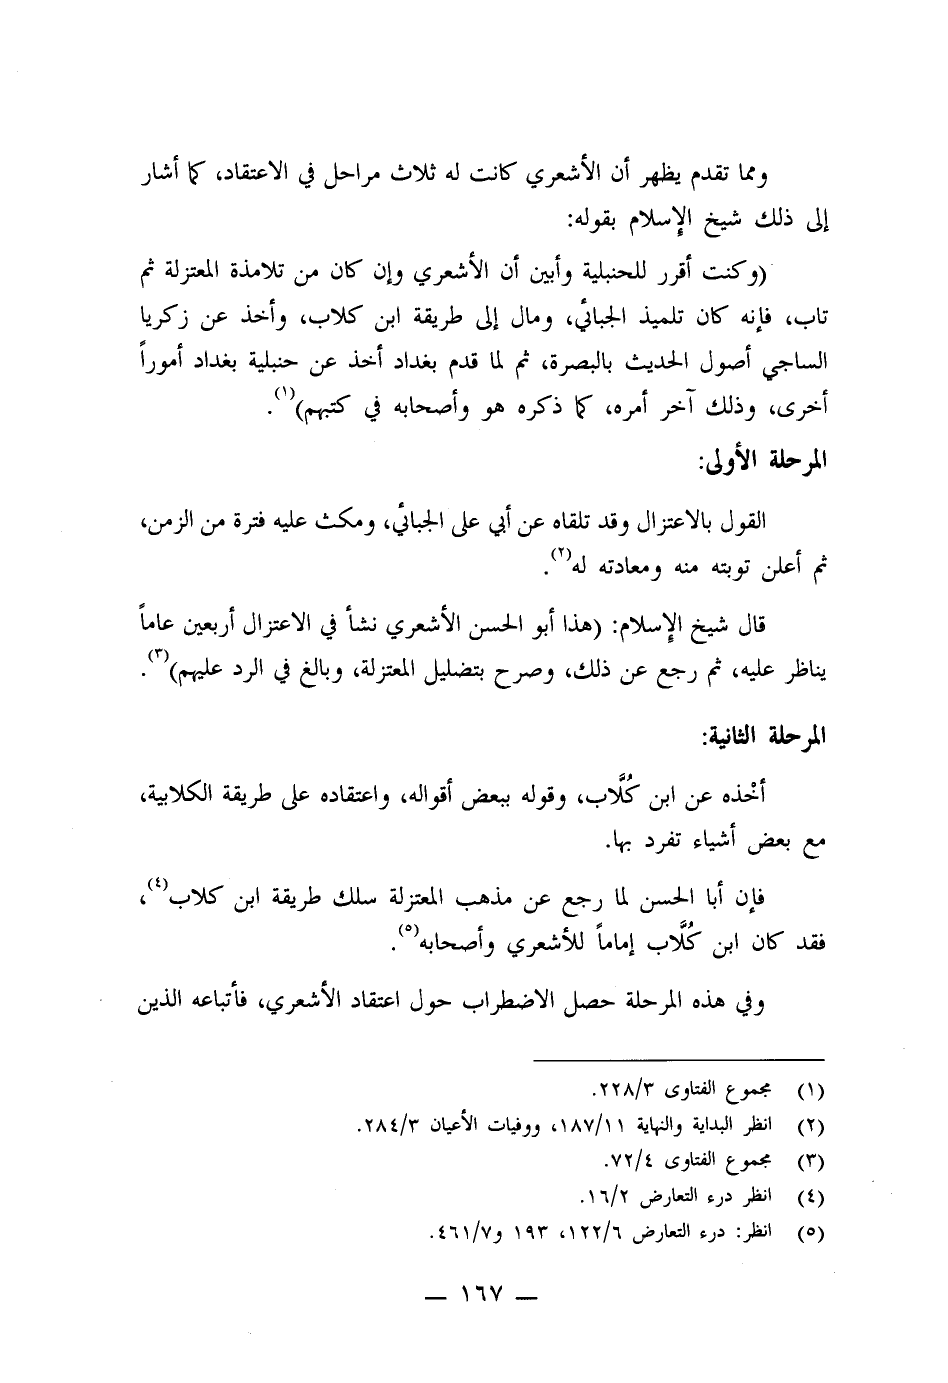 ومما تقدم يظهر أن الأشعري كانت له ثلاث مراحل في الاعتقاد، كما أشار
إلى ذلك شيخ الإسلام بقوله:
(وكنت أقرر للحنبلية وأبين أن الأشعري وإن كان من تلامذة المعتزلة ثم
تاب، فإنه كان تلميذ الجبائي، ومال إلى طريقة ابن كلاب، وأخذ عن زكريا
الساجي أصول الحديث بالبصرة، ثم لما قدم بغداد أخذ عن حنبلية بغداد أموراً
أخرى، وذلك آخر أمره، كما ذكره هو وأصحابه في كتبهم)(١).
المرحلة الأولى:
القول بالاعتزال وقد تلقاه عن أبي على الجبائي، ومكث عليه فترة من الزمن،
ثم أعلن توبته منه ومعادته له(٢).
قال شيخ الإسلام: (هذا أبو الحسن الأشعري نشأ في الاعتزال أربعين عاماً
يناظر عليه، ثم رجع عن ذلك، وصرح بتضليل المعتزلة، وبالغ في الرد عليهم)(٣).
المرحلة الثانية:
أخْذه عن ابن كُلَّاب، وقوله ببعض أقواله، واعتقاده على طريقة الكلابية،
مع بعض أشياء تفرد بها.
فإن أبا الحسن لما رجع عن مذهب المعتزلة سلك طريقة ابن كلاب(٤)،
فقد كان ابن كُلَّاب إماماً للأشعري وأصحابه(٥).
وفي هذه المرحلة حصل الاضطراب حول اعتقاد الأشعري، فأتباعه الذين
(١) مجموع الفتاوى ٢٢٨/٣.
(٢) انظر البداية والنهاية ١٨٧/١١، ووفيات الأعيان ٢٨٤/٣.
(٣) مجموع الفتاوى ٧٢/٤.
(٤) انظر درء التعارض ١٦/٢.
(٥) انظر: درء التعارض ١٢٢/٦، ١٩٣ و٤٦١/٧.
— ١٦٧ —